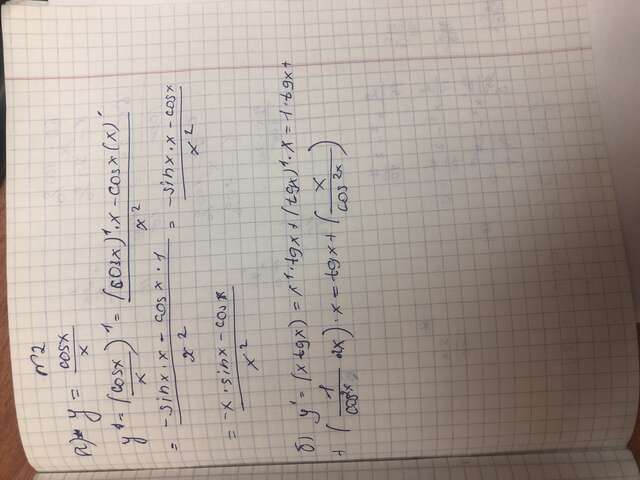 №2
а) y = cosx/x
y' = (cosx/x)' = ((cosx)'·x - cosx(x)')/x²
= (-sinx·x - cosx·1)/x² = (-sinx·x - cosx)/x²
= (-x·sinx - cosx)/x²
б) y' = (x tgx) = x'·tgx + (tgx)'·x = 1·tgx +
+ (1/cos²x)·x = tgx + (x/cos²x)